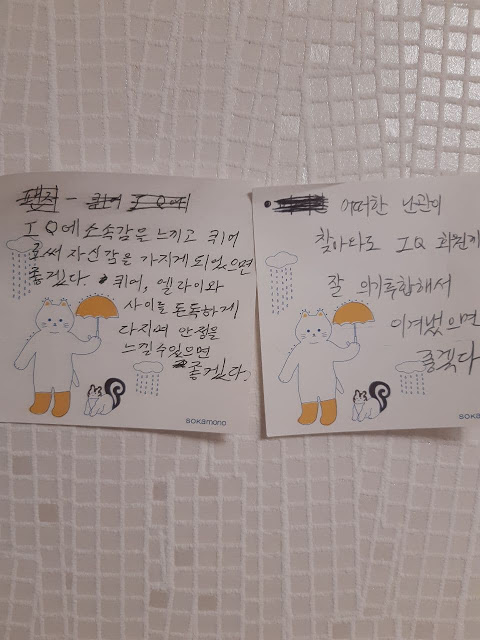 I Q에 소속감을 느끼고 퀴어
로써 자신감을 가지게 되었으면
좋겠다 퀴어, 엘라이와
사이를 돈독하게
다지며 안정을
느낄수있으면
좋겠다.
sokamono
어떠한 난관이
찾아와도 I Q 회원끼
잘 의기투합해서
이겨냈으면
좋겠다
soka